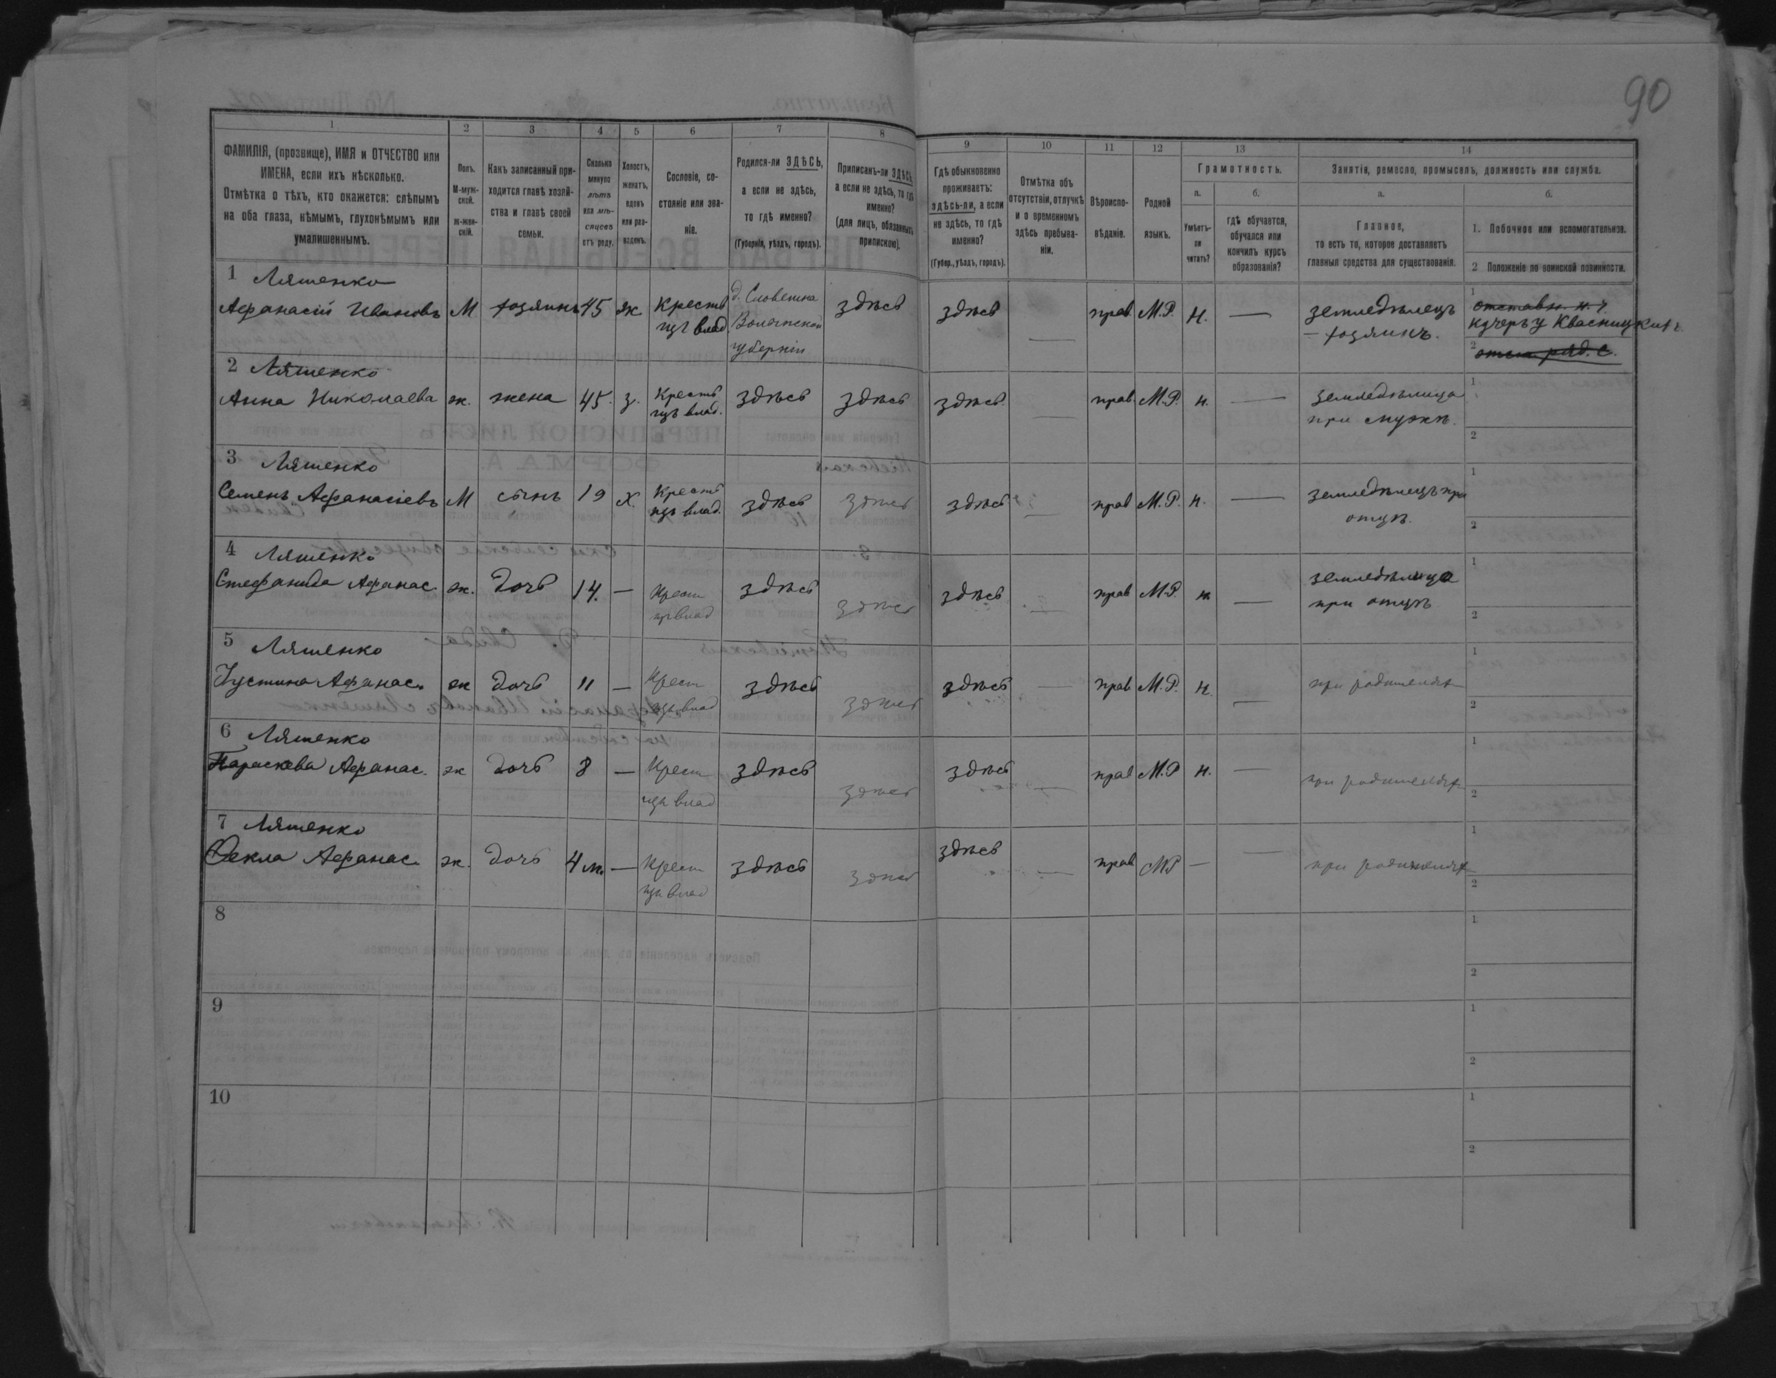 90
1 2 3 4 5 6 7 8 9 10 11 12 13 14
ФАМИЛІЯ, (прозвище), ИМЯ и ОТЧЕСТВО или
ИМЕНА, если ихъ нѣсколько.
Отмѣтка о тѣхъ, кто окажется: слѣпымъ
на оба глаза, нѣмымъ, глухонѣмымъ или
умалишеннымъ.
Полъ.
М-муж-
ской.
ж-жен-
скій.
Какъ записанный при-
ходится главѣ хозяй-
ства и главѣ своей
семьи.
Сколько
минуло
лѣтъ
или мѣ-
сяцевъ
отъ роду.
Холостъ,
женатъ,
вдовъ
или раз-
веденъ.
Сословіе, со-
стояніе или зва-
ніе.
Родился-ли ЗДѢСЬ,
а если не здѣсь,
то гдѣ именно?
(Губернія, уѣздъ, городъ).
Приписанъ-ли ЗДѢСЬ,
а если не здѣсь, то гдѣ
именно?
(для лицъ, обязанныхъ
припискою).
Гдѣ обыкновенно
проживаетъ:
здѣсь-ли, а если
не здѣсь, то гдѣ
именно?
(Губер., уѣздъ, городъ).
Отмѣтка объ
отсутствіи, отлучкѣ
и о временномъ
здѣсь пребыва-
ніи.
Вѣроиспо-
вѣданіе.
Родной
языкъ.
Грамотность.
а.
Умѣетъ-
ли
читать?
б.
гдѣ обучается,
обучался или
кончилъ курсъ
образованія?
Занятія, ремесло, промыселъ, должность или служба.
а.
Главное,
то есть то, которое доставляетъ
главныя средства для существованія.
б.
1. Побочное или вспомогательное.
2 Положеніе по воинской повинности.
1 Ляшенко
Афанасій Ивановъ М хозяинъ 45 ж. Крестъ изъ влад д. Словешна Волынской губерніи здѣсь здѣсь — прав М.Р. н. — земледѣлецъ – хозяинъ. 1 кучеръ у Квасницкихъ 2
2 Ляшенко
Анна Николаева ж. жена 45. з. Крестъ изъ влад. здѣсь здѣсь здѣсь — прав М.Р. н. — земледѣлица при мужѣ. 1 2
3 Ляшенко
Семенъ Афанасіевъ М сынъ 19 х. Крестъ изъ влад. здѣсь здѣсь здѣсь — прав М.Р. н. — земледѣлецъ при отцѣ. 1 2
4 Ляшенко
Стефанида Афанас. ж. дочь 14. — Крест изъ влад здѣсь здѣсь здѣсь — прав М.Р. н — земледѣлица при отцѣ 1 2
5 Ляшенко
Устина Афанас. ж дочь 11 — Крест изъ влад здѣсь здѣсь здѣсь — прав М.Р. н. — при родителях 1 2
6 Ляшенко
Параскева Афанас. ж дочь 8 — Крест изъ влад здѣсь здѣсь здѣсь — прав М.Р н. — при родителях 1 2
7 Ляшенко
Ѳекла Афанас. ж. дочь 4 м. — Крест изъ влад здѣсь здѣсь здѣсь — прав МР — — при родителях 1 2
8 1 2
9 1 2
10 1 2